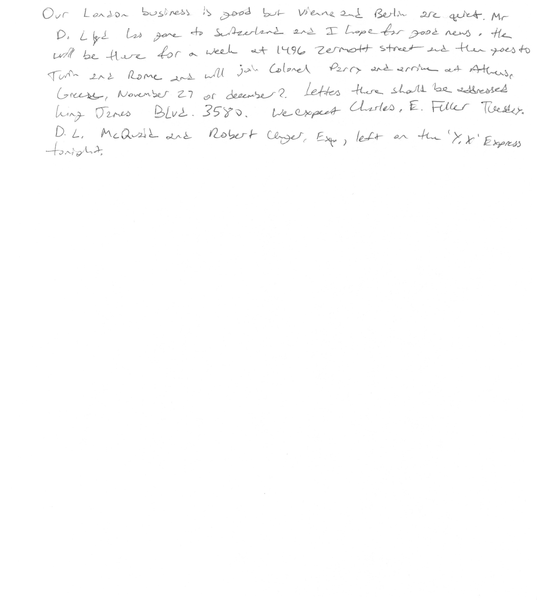 Our London business is good but Vienna and Berlin are quiet. Mr
D. Lloyd has gone to Switzerland and I hope for good news. He
will be there for a week at 1496 Zermott street and then goes to
Turin and Rome and will join Colonel Parry and arrive at Athens,
Greece, November 27 or december 2. Letters there should be addressed
King James Blvd. 3580. We expect Charles, E. Fuller Tuesday.
D. L. McQuaid and Robert Unger, Esq, left on the 'Y.X' Express
tonight.